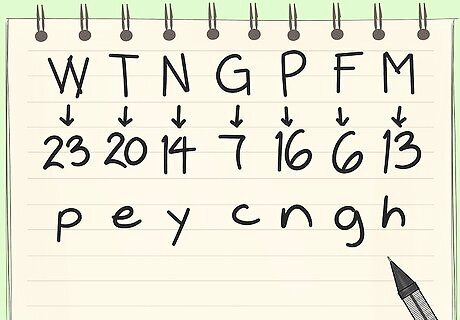 W T N G P F M
23 20 14 7 16 6 13
p e y c n g h